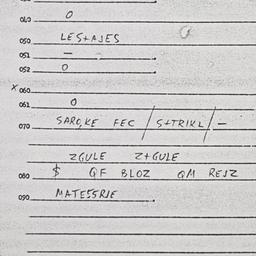 040 O
050 LES+AJES
051 —
052 O
x 060
061 O
070 SAROCKE FEC / S+TRIKL / —
ZGULE Z+GULE
080 $ QF BLOZ QM REJZ
090 MATESSRJE